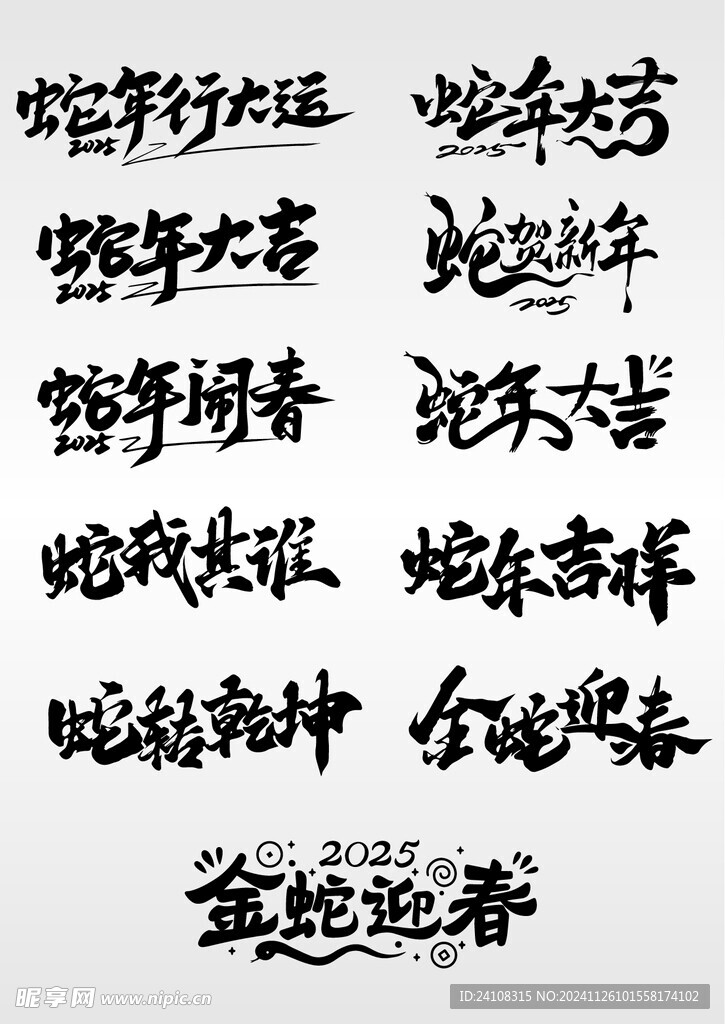 蛇年行大运
2025
蛇年大吉
2025
蛇年大吉
2025
蛇贺新年
2025
蛇年闹春
2025
蛇年大吉
蛇我其谁
蛇年吉祥
蛇转乾坤
金蛇迎春
2025
金蛇迎春
昵享网 www.nipic.cn
ID:24108315 NO:20241126101558174102